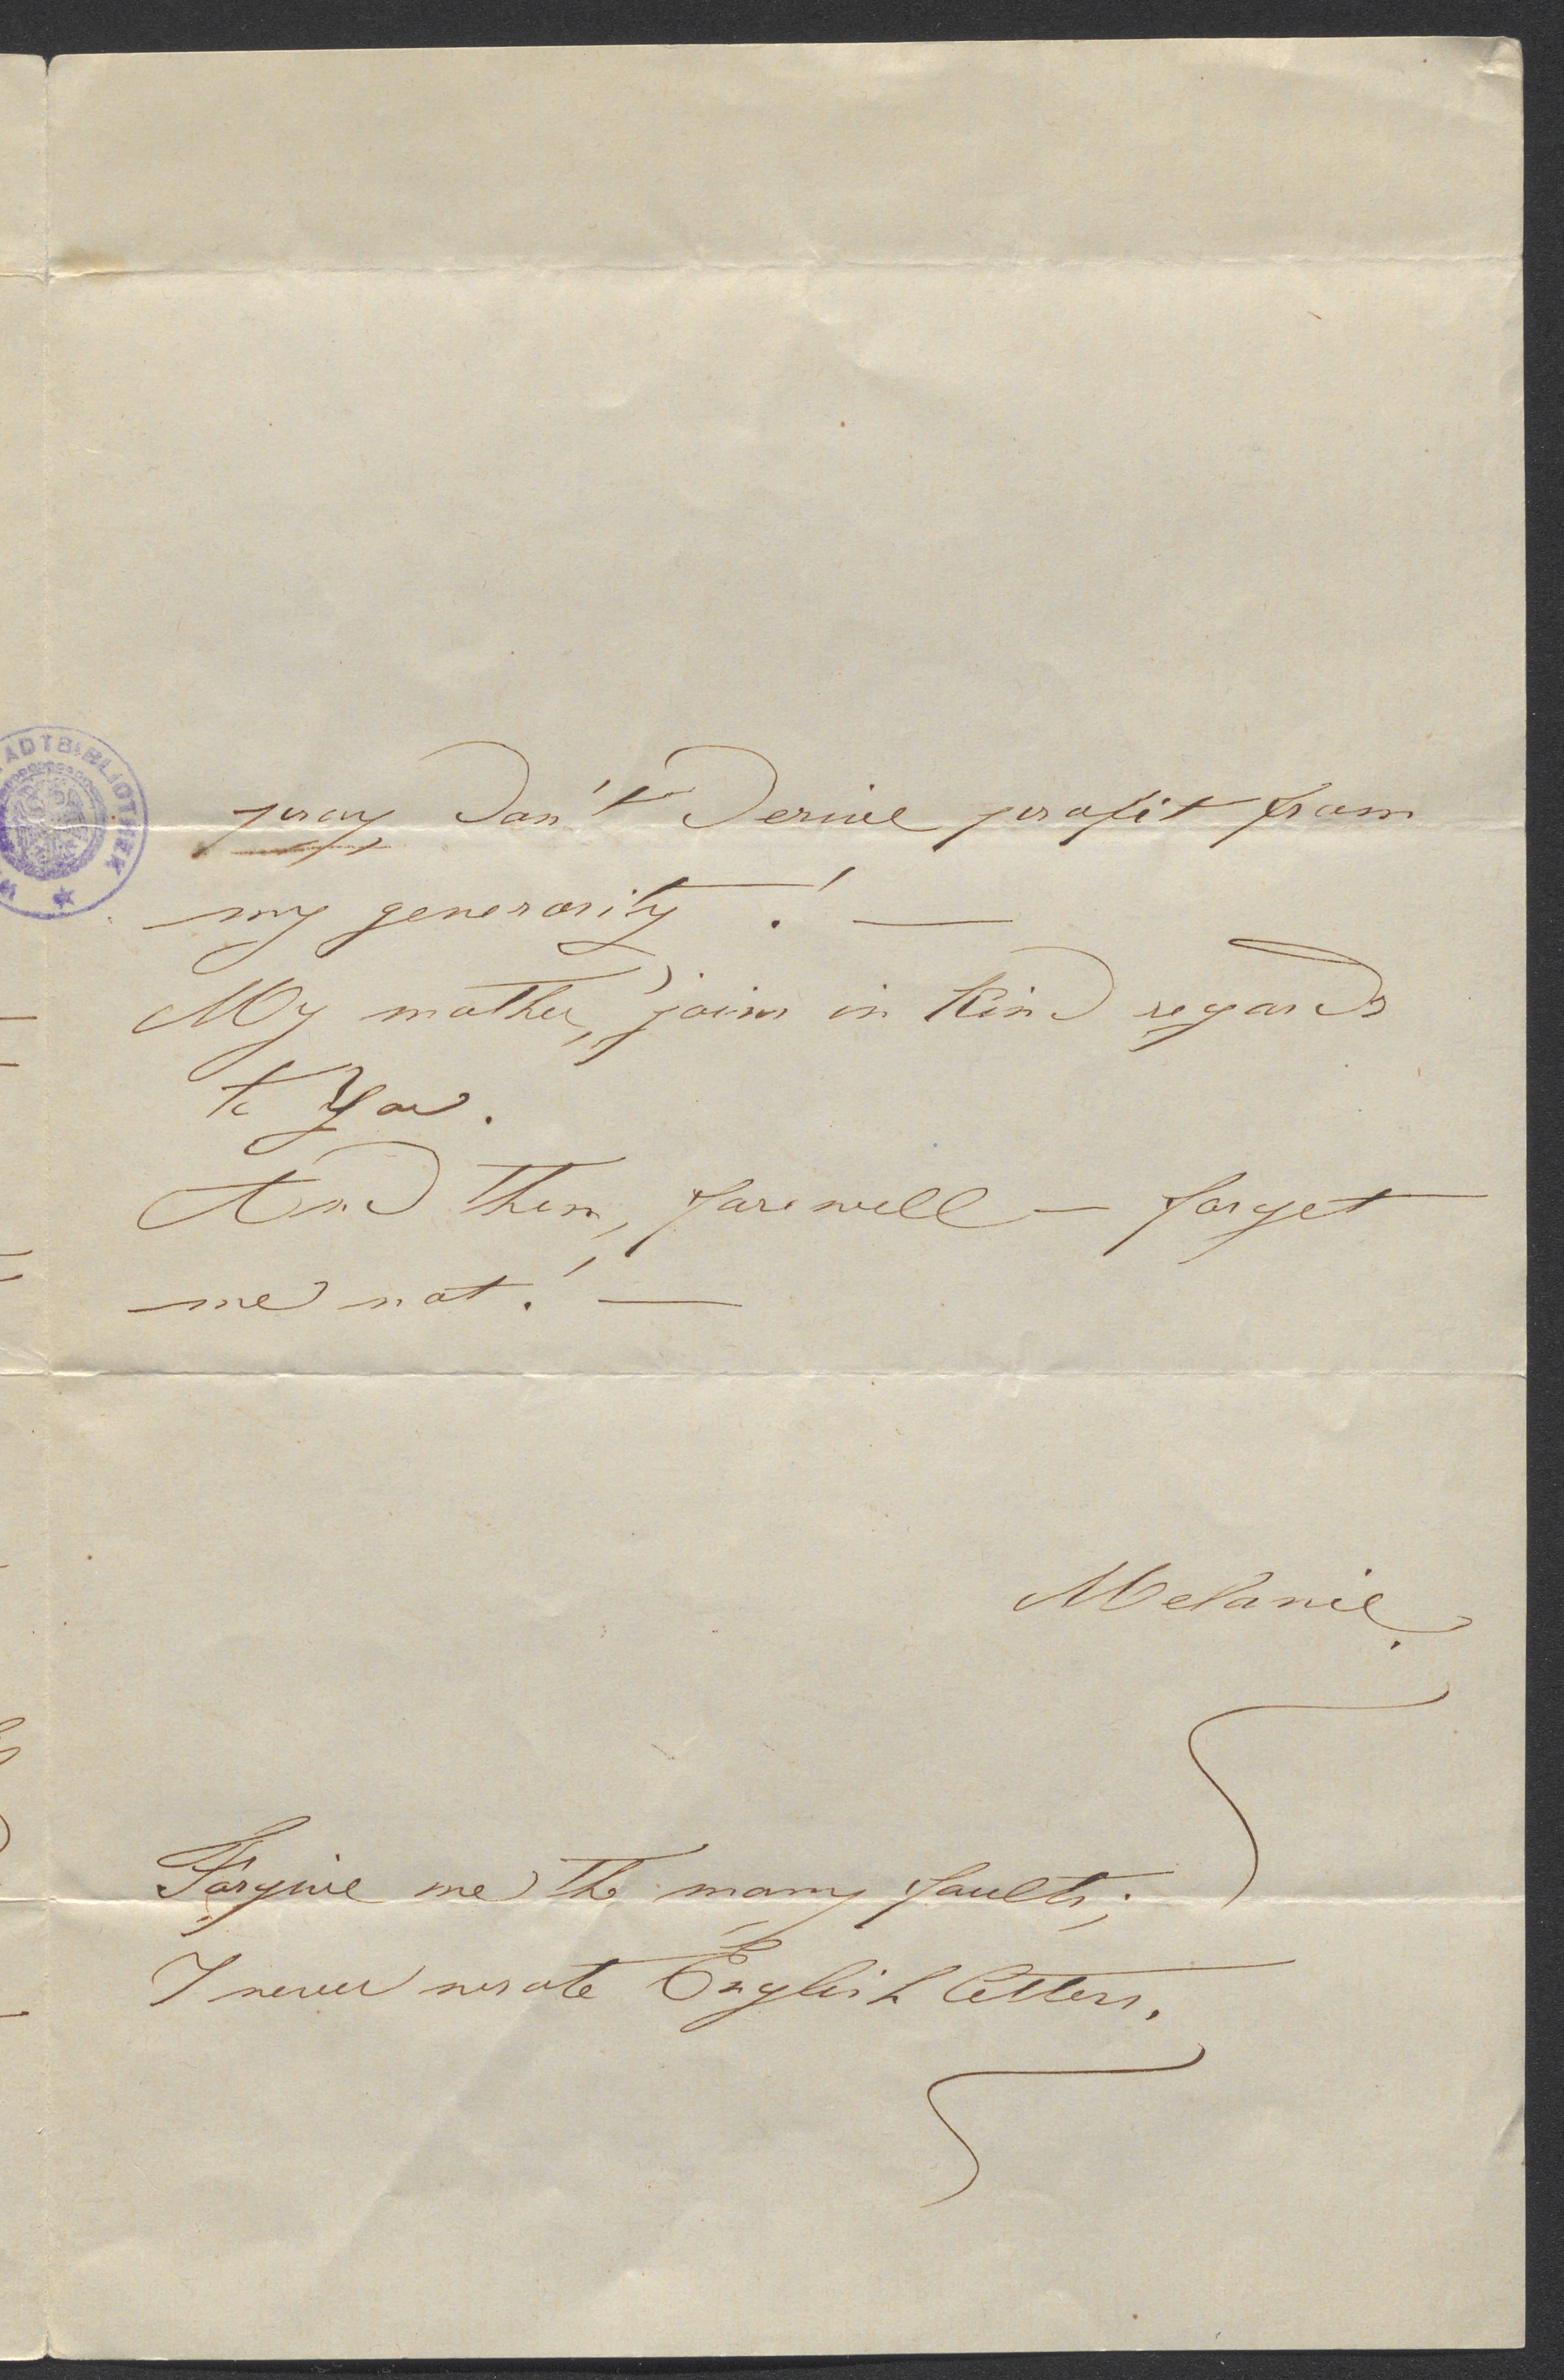 pray don't derive profit from
my generosity! —
My mother, joins in kind regards
to You.
And then, farewell — forget
me not! —
Melanie.
Forgive me the many faults;
I never wrote English letters.